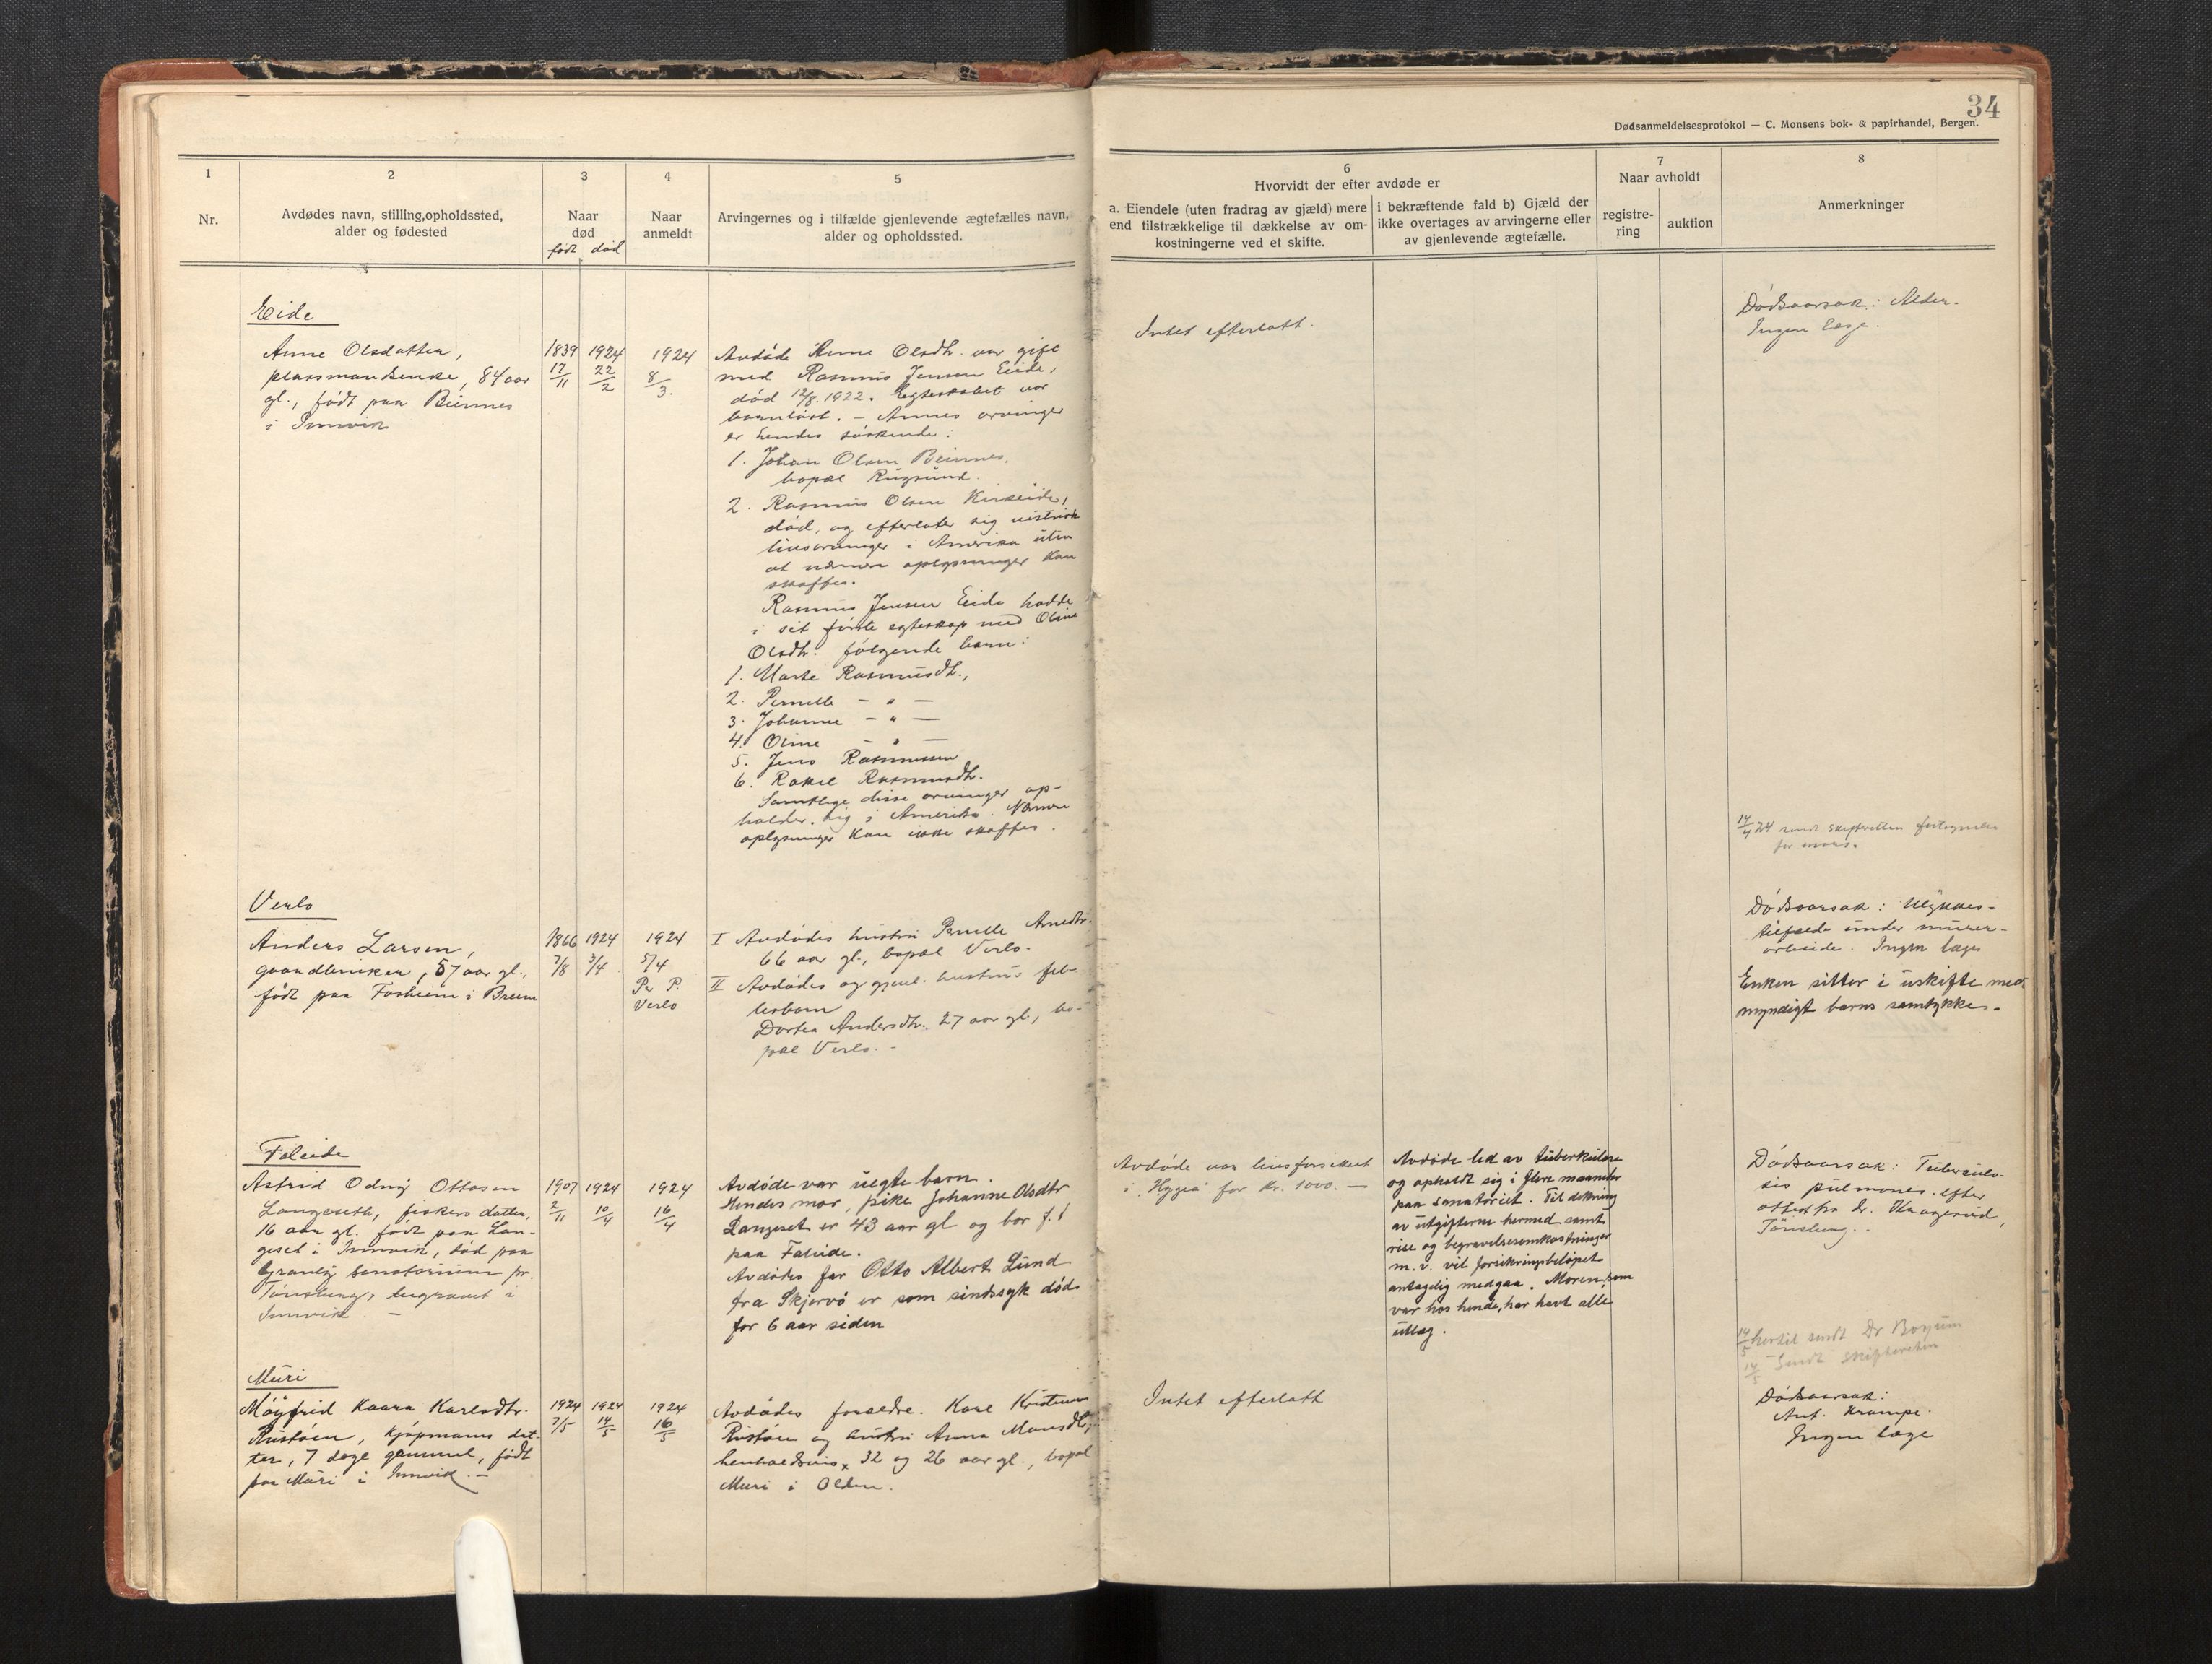 34
Dødsanmeldelsesprotokol — C. Monsens bok- & papirhandel, Bergen.
1
Nr.
2
Avdødes navn, stilling, opholdssted,
alder og fødested
3
Naar
død
født død
4
Naar
anmeldt
5
Arvingernes og i tilfælde gjenlevende ægtefælles navn,
alder og opholdssted.
6
Hvorvidt der efter avdøde er
a. Eiendele (uten fradrag av gjæld) mere
end tilstrækkelige til dækkelse av om-
kostningerne ved et skifte.
i bekræftende fald b) Gjæld der
ikke overtages av arvingerne eller
av gjenlevende ægtefælle.
7
Naar avholdt
registre-
ring
auktion
8
Anmerkninger
Eide
Anne Olsdatter,
plassmandsenke, 84 aar
gl., født paa Beinnes
i Innvik
1839 17/11
1924 22/2
1924
8/3.
Avdøde Anne Olsdtr. var gift
med Rasmus Jensen Eide,
død 12/8. 1922. Egteskabet var
barnløst. – Annes arvinger
er hendes søskende:
1. Johan Olsen Beinnes,
bopæl Rugsund.
2. Rasmus Olsen Kirkeide,
død, og efterlater sig
livsarvinger i Amerika uten
at nærmere oplysninger kan
skaffes.
Rasmus Jensen Eide hadde
i sit første egteskap med Oline
Olsdtr. følgende barn:
1. Marte Rasmusdtr.,
2. Pernille – " –
3. Johanne – " –
4. Oline – " –
5. Jens Rasmussen
6. Rakel Rasmusdtr.
Samtlige disse arvinger op-
holder sig i Amerika. Nærmere
oplysninger kan ikke skaffes.
Intet efterlatt.
Dødsaarsak: Alder.
Ingen læge.
14/4 24 sendt skifteretten fortegnelse
for mars.
Verlo
Anders Larsen,
gaardbruker, 57 aar gl.,
født paa Fosheim i Breim
1866 7/8
1924 3/4
1924
5/4
Per P.
Verlo
I Avdødes hustru Pernille Arnedtr.
66 aar gl., bopæl Verlo.
II Avdødes og gjenl. hustrus fel-
lesbarn
Dortea Andersdtr. 27 aar gl., bo-
pæl Verlo. –
Dødsaarsak: Ulykkes-
tilfælde under murer-
arbeide. Ingen læge
Enken sitter i uskifte med
myndigt barns samtykke.
Faleide
Astrid Odny Ottosen
Langeseth, fiskers datter,
16 aar gl. født paa Lan-
geset i Innvik, død paa
Granly sanatorium pr.
Tønsberg, begravet i
Innvik. –
1907 2/11
1924 10/4
1924
16/4
Avdøde var uegte barn.
Hendes mor, pike Johanne Olsdtr
Langeset er 43 aar gl og bor f.t
paa Faleide.
Avdødes far Otto Albert Lund
fra Skjervø er som sindssyk død
for 6 aar siden
Avdøde var livsforsikret
i "Hygea" for kr. 1000. –
Avdøde led av tuberkulose
og opholdt sig i flere maaneder
paa sanatoriet. Til dekning
av utgifterne hermed samt
reise og begravelsesomkostninger
m. v. vil forsikringsbeløpet
antagelig medgaa. Moren, som
var hos hende, har havt alle
utlæg.
Dødsaarsak: Tubercul-
sis pulmones. efter
attest fra dr.
Tønsberg.
14/5 hertil sendt Dr Boyum
14/5 Sendt skifteretten
Muri
Møyfrid Kaara Karlsdtr.
Rustøen, kjøpmanns dat-
ter, 7 dage gammel, født
paa Muri i Innvik. –
1924 7/5
1924 14/5
1924
16/5
Avdødes forældre. Karl Kristian
Rustøen og hustru Anna Monsdtr,
henholdsvis 32 og 26 aar gl., bopæl
Muri i Olden.
Intet efterlatt
Dødsaarsak:
Ant. Krampe.
Ingen læge